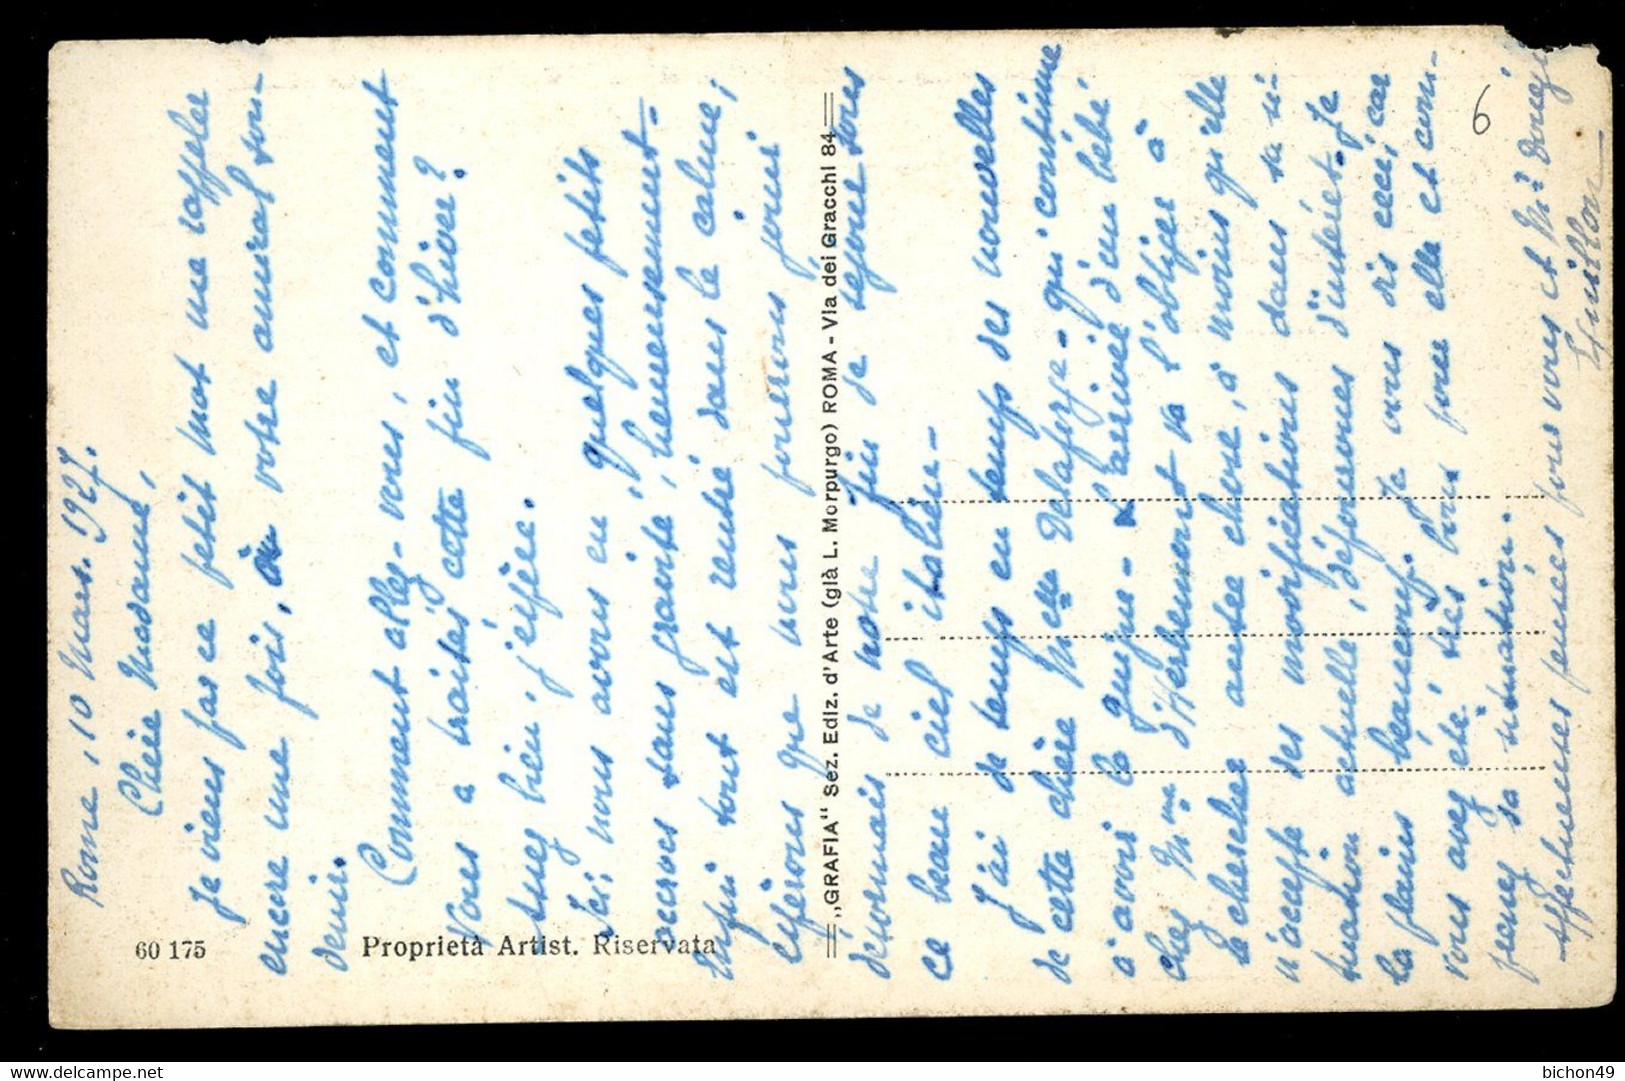 Rome, 10 Mars. 1927.
Chère Madame,
Je viens par ce petit mot me rappeler
encore une fois, à votre amical sou-
venir.
Comment allez-vous, et comment
vous a traités cette fin d'hiver?
assez bien j'espère.
Ici, nous avons eu quelques petits
accrocs sans gravité, heureusement.
Enfin tout est rentré dans le calme,
espérons que nous pourrons jouir
désormais de notre fin de séjour sous
ce beau ciel italien-
J'ai de temps en temps des nouvelles
de cette chère Mme Delaforge- qui continue
à avoir la guigne- l'arrivée d'un bébé
chez Mme d'Herbemont va l'obliger à
chercher autre chose, à moins qu'elle
n'accepte des modifications dans sa si-
tuation actuelle, dépourvues d'intérêt- Je
la plains beaucoup. Je vous dis ceci, car
vous avez été très bons pour elle et con-
naissez sa situation.
affectueuses pensées pour vous et Mr
Guillon
6
60 175
Proprietà Artist. Riservata
„GRAFIA" Sez. Ediz. d'Arte (già L. Morpurgo) ROMA - Via dei Gracchi 84
bichon49